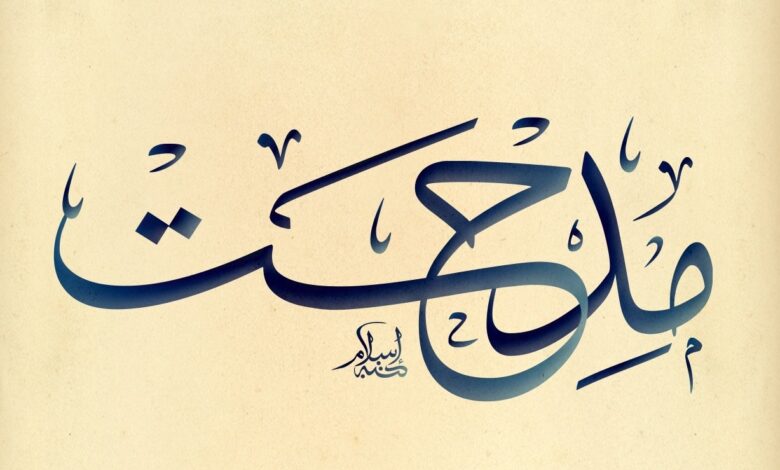 مِدحت
كتبه إسلام